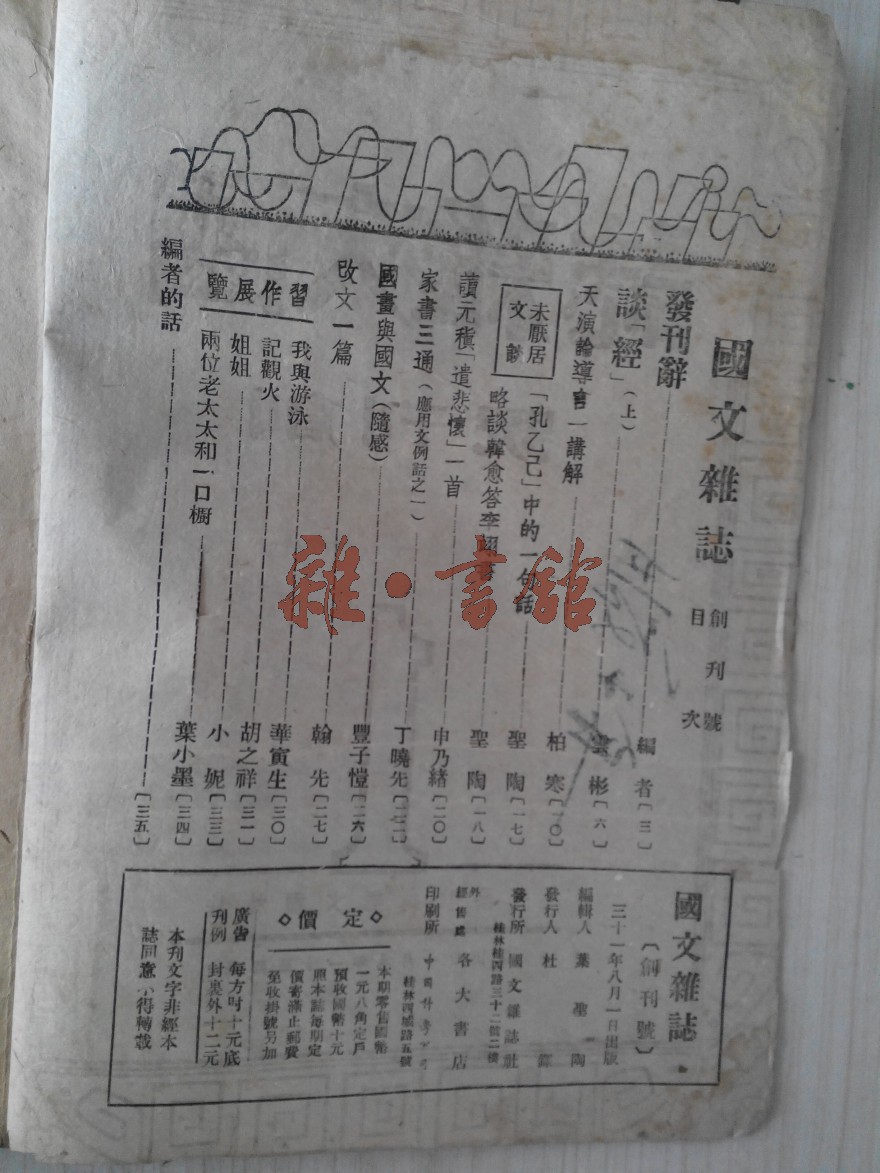 國文雜誌
創刊號
目次
發刊辭 編者〔三〕
談「經」（上） 雲彬〔六〕
天演論導言一講解 柏寒〔一〇〕
未厭居文談
「孔乙己」中的一句話 聖陶〔一七〕
略談韓愈答李翊書 聖陶〔一八〕
讀元稹「遣悲懷」一首 申乃緒〔二〇〕
家書三通（應用文例話之一） 丁曉先〔二二〕
國畫與國文（隨感） 豐子愷〔二六〕
改文一篇 翰先〔二七〕
習作展覽
我與游泳 華寅生〔三〇〕
記觀火 胡之祥〔三一〕
姐姐 小妮〔三三〕
兩位老太太和一口櫥 葉小墨〔三四〕
編者的話 〔三五〕
國文雜誌
〔創刊號〕
三十一年八月一日出版
編輯人 葉聖陶
發行人 杜
發行所 國文雜誌社
桂林桂西路三十二號二樓
外經售處 各大書店
印刷所
桂林西城路五號
◇定價◇
本期零售國幣
一元八角定戶
預收國幣十元
照本誌每期定
價寄滿止郵費
免收掛號另加
廣告刊例
每方吋十元底
封裏外十二元
本刊文字非經本
誌同意不得轉載
雜·書館